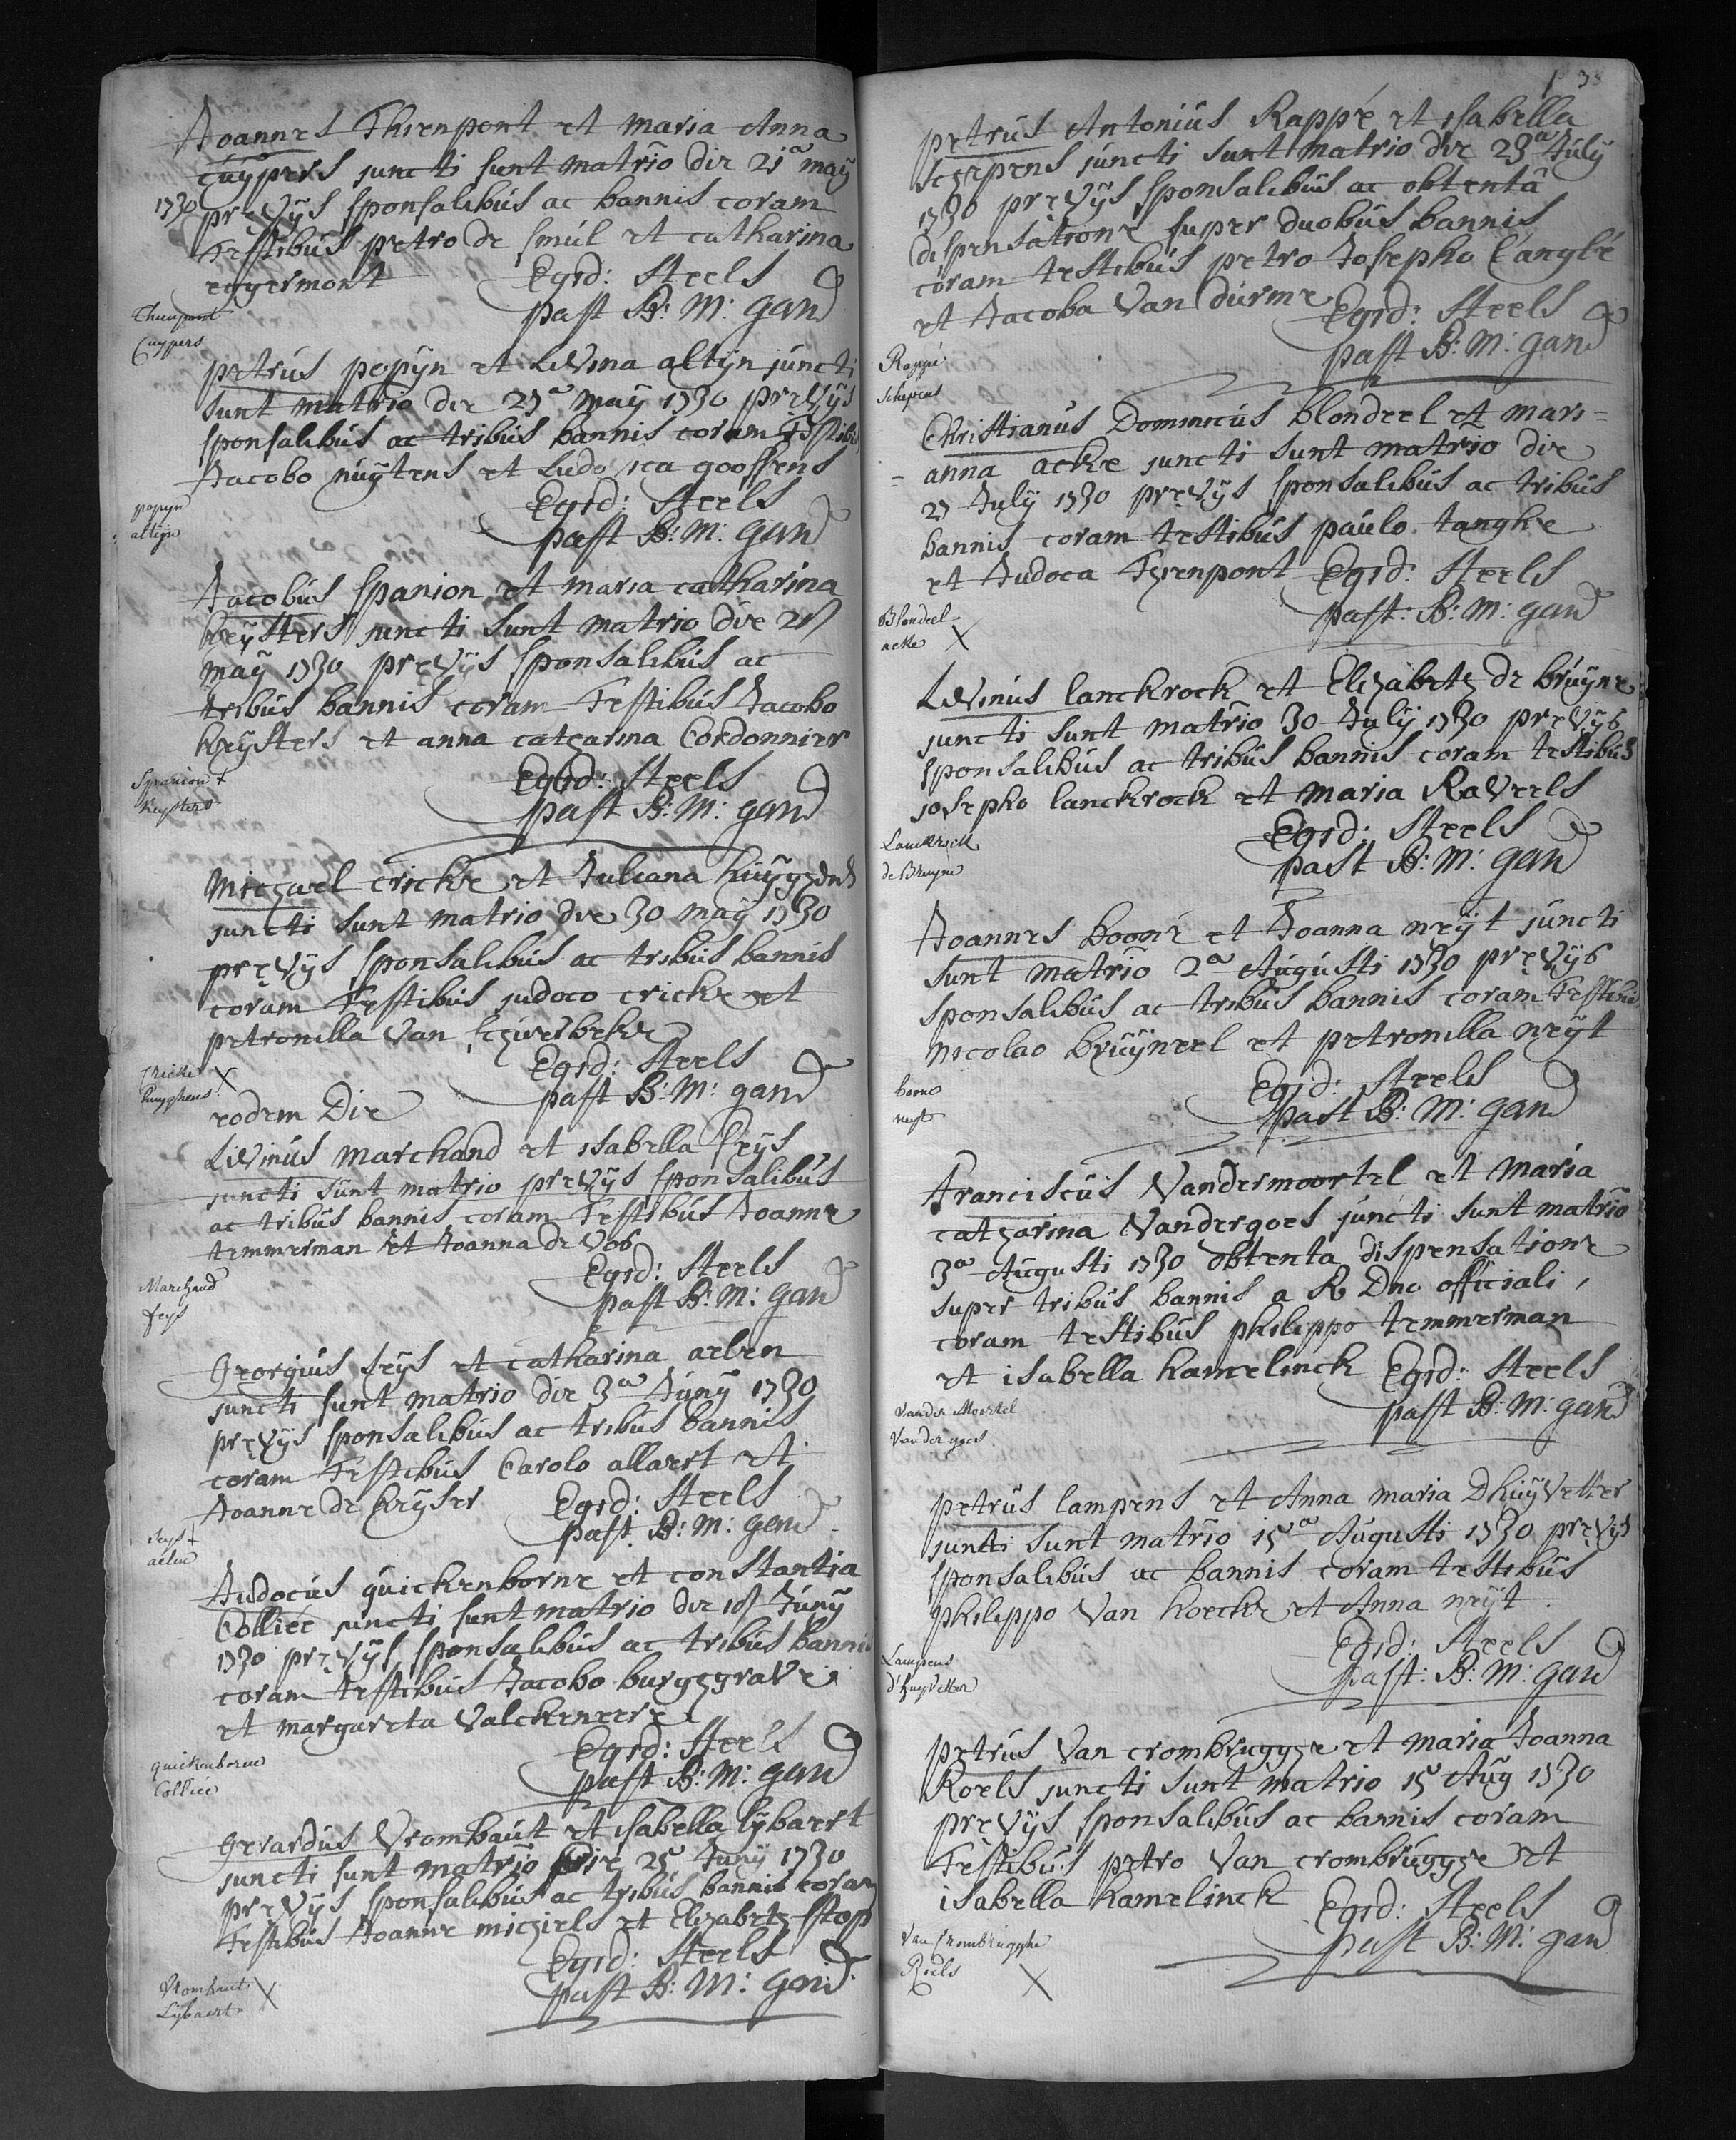 Joannes Thienpont et maria Anna
cuÿpers juncti sunt matrio die 21a maÿ
1730 prævÿs sponsalibus ac bannis coram
testibus petro de smul et catharina
eggermont Egid: Steels
past B: M: gand
Thienpont
Cuypers
petrus popÿn et Livina altÿn juncti
sunt matrio die 27a maÿ 1730 prævÿs
sponsalibus ac tribus bannis coram testibus
Jacobo nuÿtens et Ludovica goossens
Egid: Steels
past B: M: gand
popyn
altijn
Jacobus Spanion et maria catharina
keÿsters juncti sunt matrio die 28
maÿ 1730 prævÿs sponsalibus ac
tribus bannis coram testibus Jacobo
keÿsters et anna catharina Cordonnier
Egid: Steels
past B: M: gand
Spanion +
Keysters
Michael cricke et Juliana huÿghens
juncti sunt matrio die 30 maÿ 1730
prævÿs sponsalibus ac tribus bannis
coram testibus judoco cricke et
petronilla van schversbeke
Egid: Steels
past B: M: gand
Cricke X
huyghens
eodem Die
Livinus marchand et isabella seÿs
juncti sunt matrio prævÿs sponsalibus
ac tribus bannis coram testibus Joanne
temmerman et Joanna de vos
Egid: Steels
past B: M: gand
Marchand
seys
Georgius seÿs et catharina aelven
juncti sunt matrio die 3a Junÿ 1730
prævÿs sponsalibus ac tribus bannis
coram testibus Carolo allaert et
Joanne de keÿser Egid: Steels
past B: M: gand
seys +
aelve
Judocus quickenborne et constantia
Colliéé juncti sunt matrio die 18 Junÿ
1730 prævÿs sponsalibus ac tribus bannis
coram testibus Jacobo burghgrave
et margareta valckeneere
Egid: Steels
past B: M: gand
quickenborne
Colliée
gerardus vrombaut et isabella lÿbaert
juncti sunt matrio die 25 Junÿ 1730
prævÿs sponsalibus ac tribus bannis coram
testibus Joanne michiels et Elizabeth stop
Egid: Steels
past B: M: gand
Vrombaut X
Lybaert
petrus Antonius Rappé et isabella
schepens juncti sunt matrio die 23a Julÿ
1730 prævÿs sponsalibus ac obtenta
dispensatione super duobus bannis
coram testibus petro Josepho l'anglé
et Jacoba van durme Egid: Steels
past B: M: gand
Rappé
schepens
Christianus Dominicus blondeel et mari=
=anna acke juncti sunt matrio die
27 Julÿ 1730 prævÿs sponsalibus ac tribus
bannis coram testibus paulo tanghe
et Judoca Tyenpont Egid: Steels
past: B: M: gand
Blondeel
acke X
Livinus lanckrock et Elizabeth de bruÿne
juncti sunt matrio 30 Julÿ 1730 prævÿs
sponsalibus ac tribus bannis coram testibus
josepho lanckrock et maria Raveels
Egid: Steels
past B: M: gand
Lanckrock
de Bruyne
Joannes boone et Joanna neÿt juncti
sunt matrio 2a Augusti 1730 prævÿs
sponsalibus ac tribus bannis coram testibus
nicolao bruÿneel et petronilla neÿt
Egid: Steels
past B: M: gand
boone
neyt
Franciscus Vandermoortel et maria
catharina Vandergoes juncti sunt matrio
3a Augusti 1730 obtenta dispensatione
super tribus bannis a R Dno officiali,
coram testibus philippo temmerman
et isabella hamelinck Egid: Steels
past B: M: gand
Vander Moortel
Vander goes
petrus lampens et Anna maria Dhuÿvetter
juncti sunt matrio 15a Augusti 1730 prævÿs
sponsalibus ac bannis coram testibus
philippo van hoecke et Anna neÿt.
Egid: Steels
past: B: M: gand
Lampens
d'huyvetter
petrus Van crombrugghe et maria Joanna
Roels juncti sunt matrio 15 Aug 1730
prævÿs sponsalibus ac bannis coram
testibus petro van crombrugghe et
isabella hamelinck Egid: Steels
past B: M: gand
Van Crombrugghe
Roels X